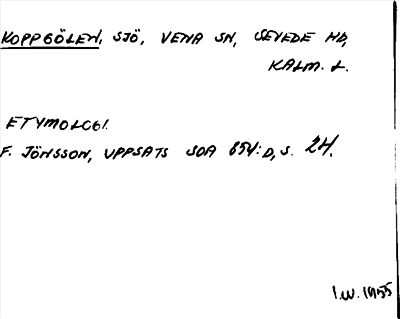 KOPPGÖLEN, SJÖ, VENA SN, SEVEDE HD,
KALM. L.
ETYMOLOGI.
F. JÖNSSON, UPPSATS SOA 654:D, S. 24.
I.W. 1955